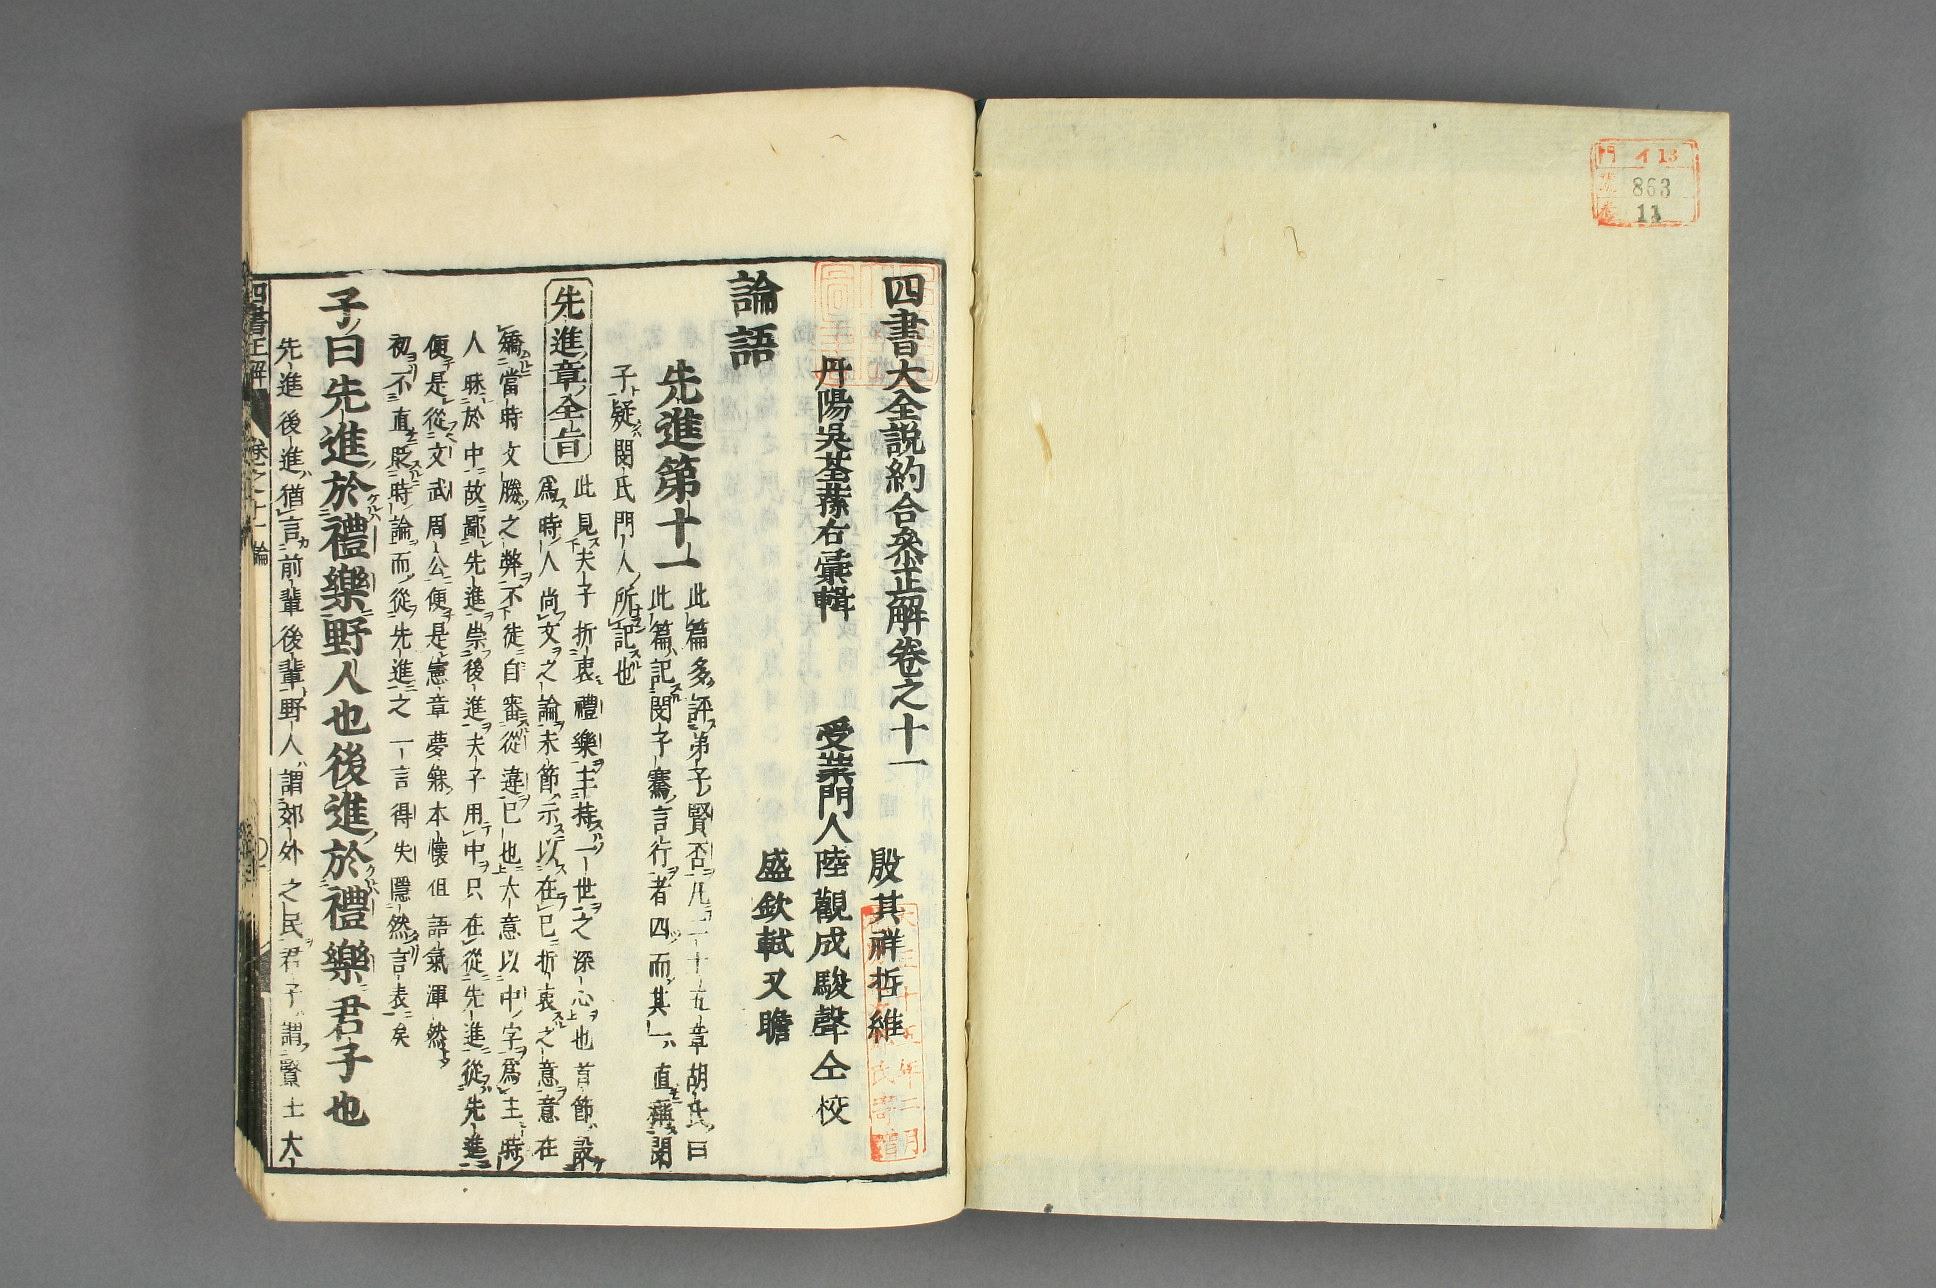 門 イ13
号 863
巻 11
四書大全説約合參正解卷之十一
丹陽吳荃蓀右彙輯
殷其祥哲維
受業門人陸觀成駿聲仝校
盛欽軾又瞻
論語
先進第十一
此篇多評弟子賢否凡二十五章胡氏曰
此篇記閔子騫言行者四而其一直稱閔
子疑閔氏門人所記也
先進章全旨
此見夫子折衷禮樂主持一世之深心也首節設
為時人尚文之論末節示以在已折衷之意意在
矯當時文勝之弊不徒自審從違已也大意以中字為主時
人昧於中故鄙先進崇後進夫子用中只在從先進從先進
便是從文武周公便是憲章夢寐本懷但語氣渾然
初不直貶時論而從先進之一言得失隱然言表矣
子曰先進於禮樂野人也後進於禮樂君子也
先進後進猶言前輩後輩野人謂郊外之民君子謂賢士大
四書正解 卷之十一 論